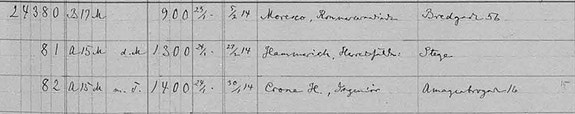 24380 B17M 900 23/1 5/2 14 Moresco, Kommerceraad Bredgade 56
81 A15M d.M 1300 24/1 27/2 14 Hammerich, Herredsfuldm: Stege
82 A15M m.T. 1400 24/1 30/1 14 Crone H., Ingeniør Amagerbrogade 16